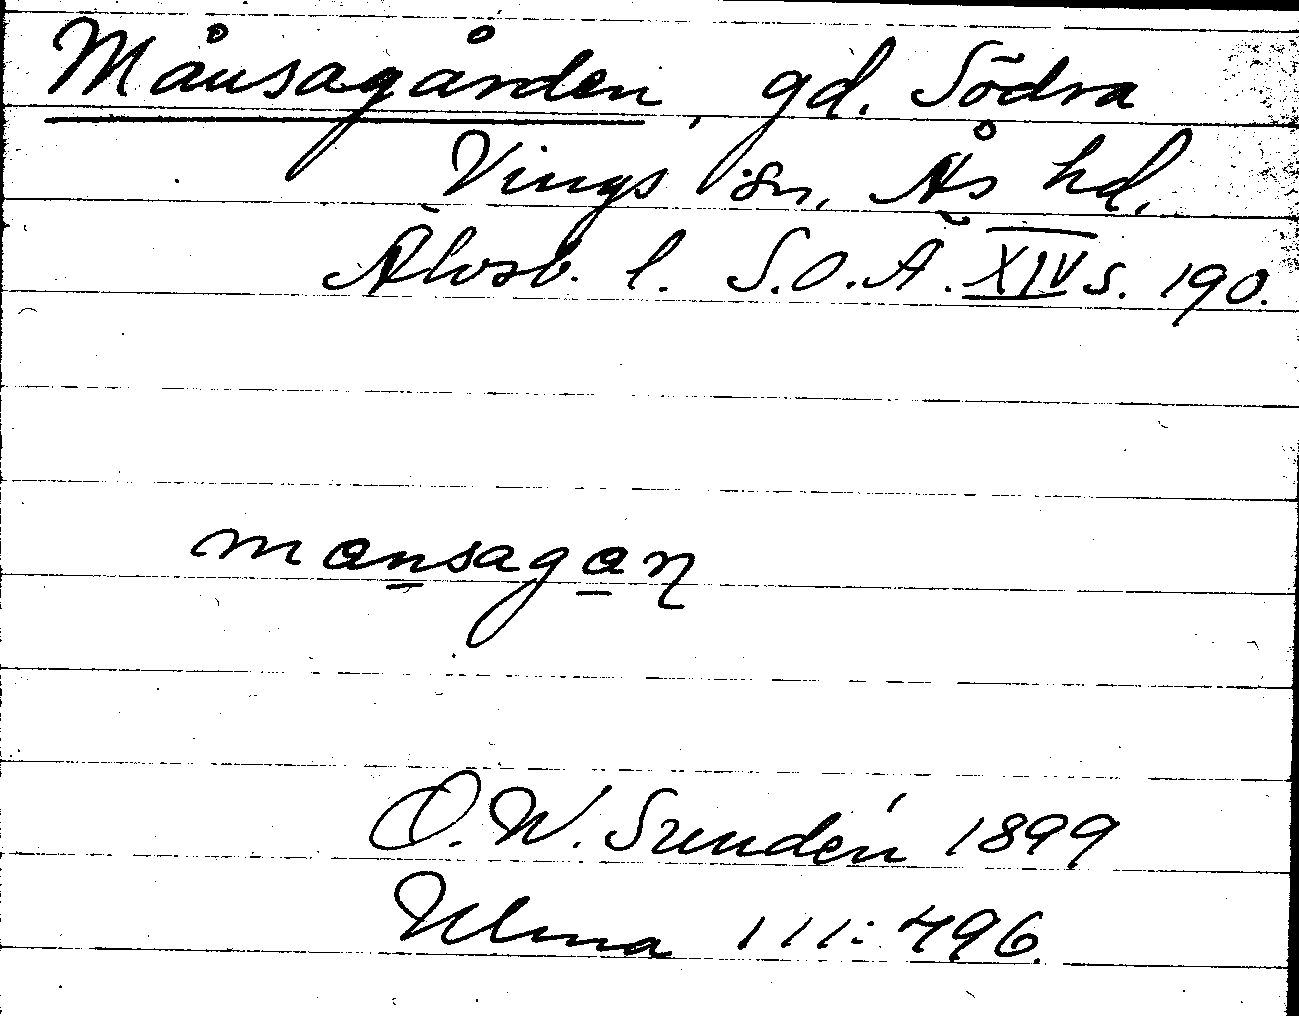 Månsagården, gd. Södra
Vings sn, Ås hd,
Älvsb. l. S.O.A. XIV s. 190.
mansagan
D. W. Sundén 1899
Ulma 111:496.